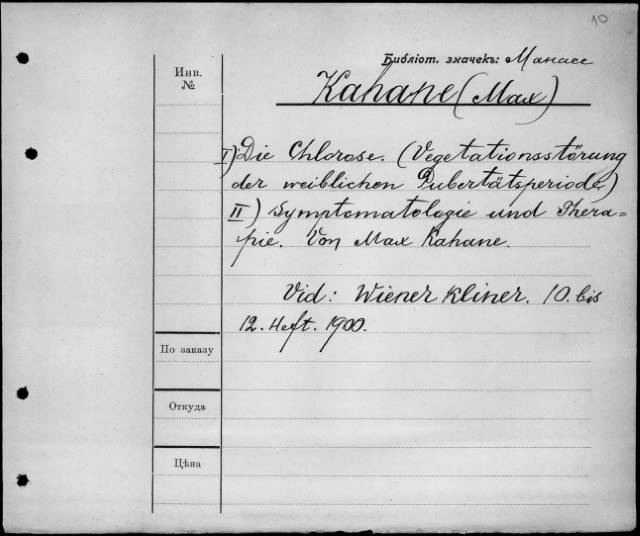 10
Библіот. значекъ: Манасе
Инв.
№
Kahane (Max)
I) Die Chlorose. (Vegetationsstörung
der weiblichen Pubertätsperiode)
II) Symptomatologie und Thera=
pie. Von Max Kahane.
Vid: Wiener Kliner. 10. bis
12. Heft. 1900.
По заказу
Откуда
Цѣна